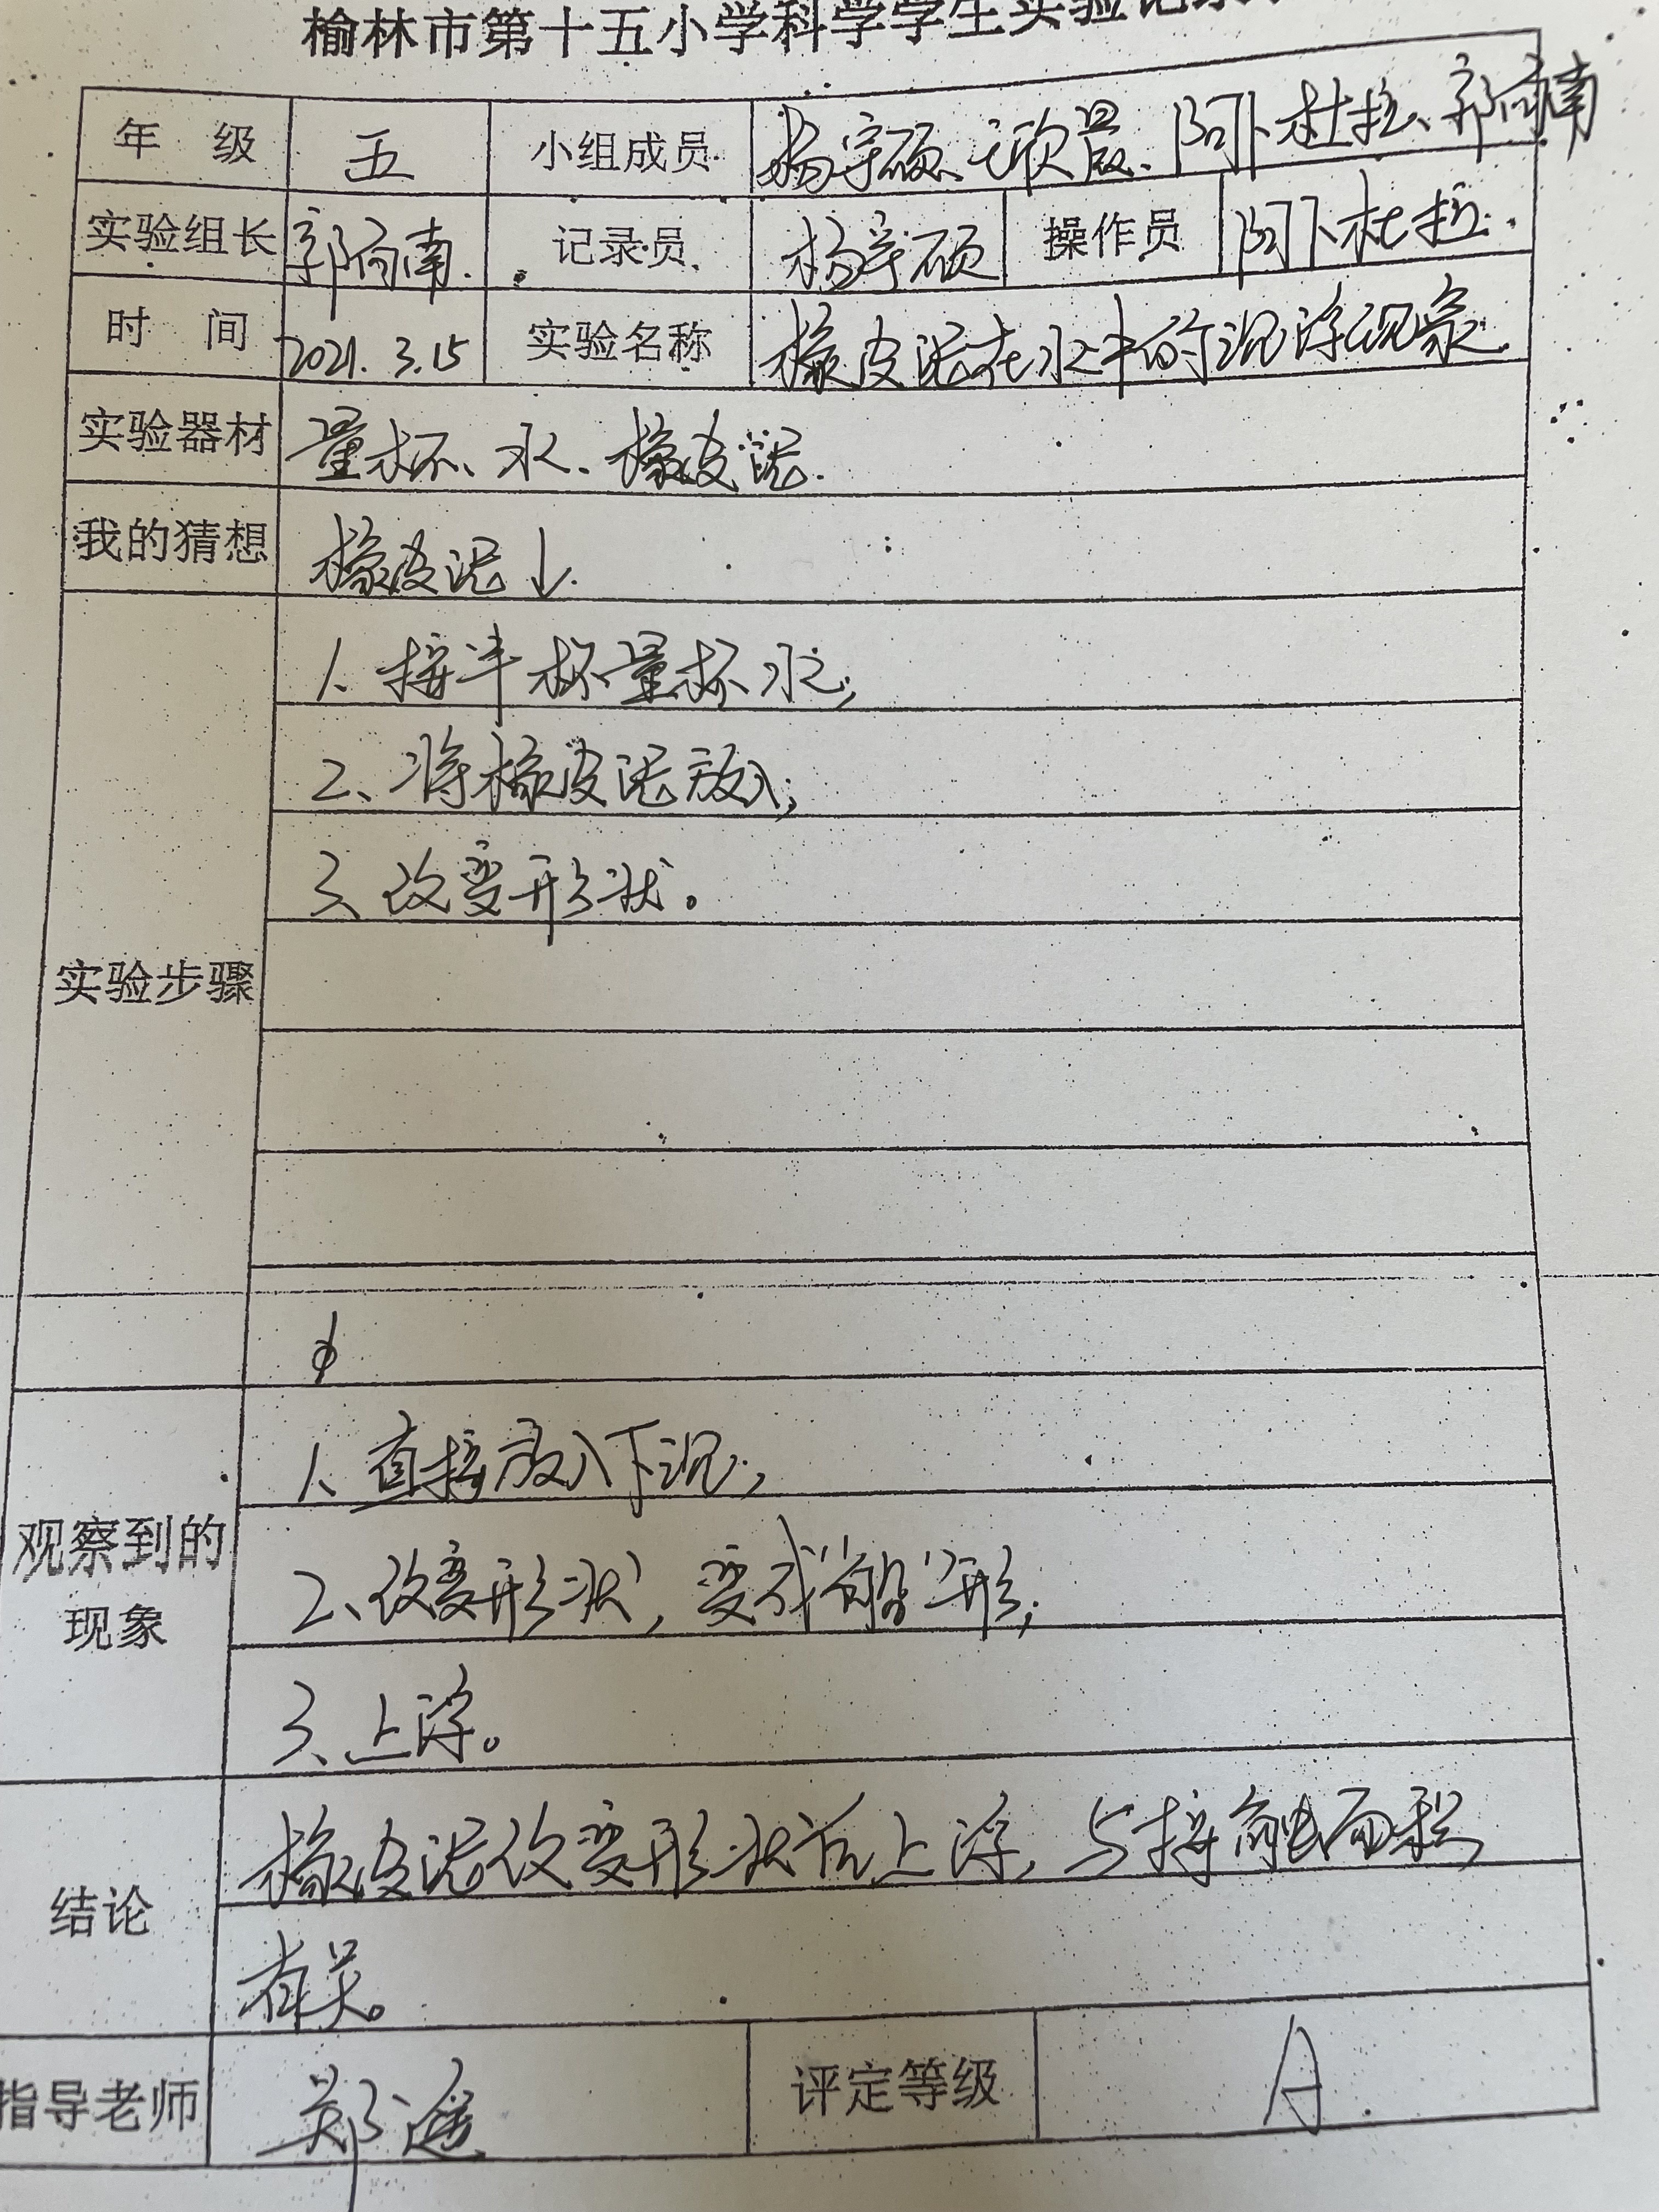 榆林市第十五小学科学学生实验记录
年 级 五 小组成员 杨宇硕、欣晨、阿卜杜拉、郭向南
实验组长 郭向南. 记录员 杨宇硕 操作员 阿卜杜拉.
时 间 2021.3.15 实验名称 橡皮泥在水中的沉浮现象.
实验器材 量杯、水、橡皮泥.
我的猜想 橡皮泥↓.
1、接半杯量杯水;
2、将橡皮泥放入;
3、改变形状。
实验步骤
1、直接放入下沉;
观察到的
2、改变形状,变成“船”形;
现象
3、上浮。
橡皮泥改变形状后上浮,与接触面积
结论
有关。
指导老师 郑遥 评定等级 A.